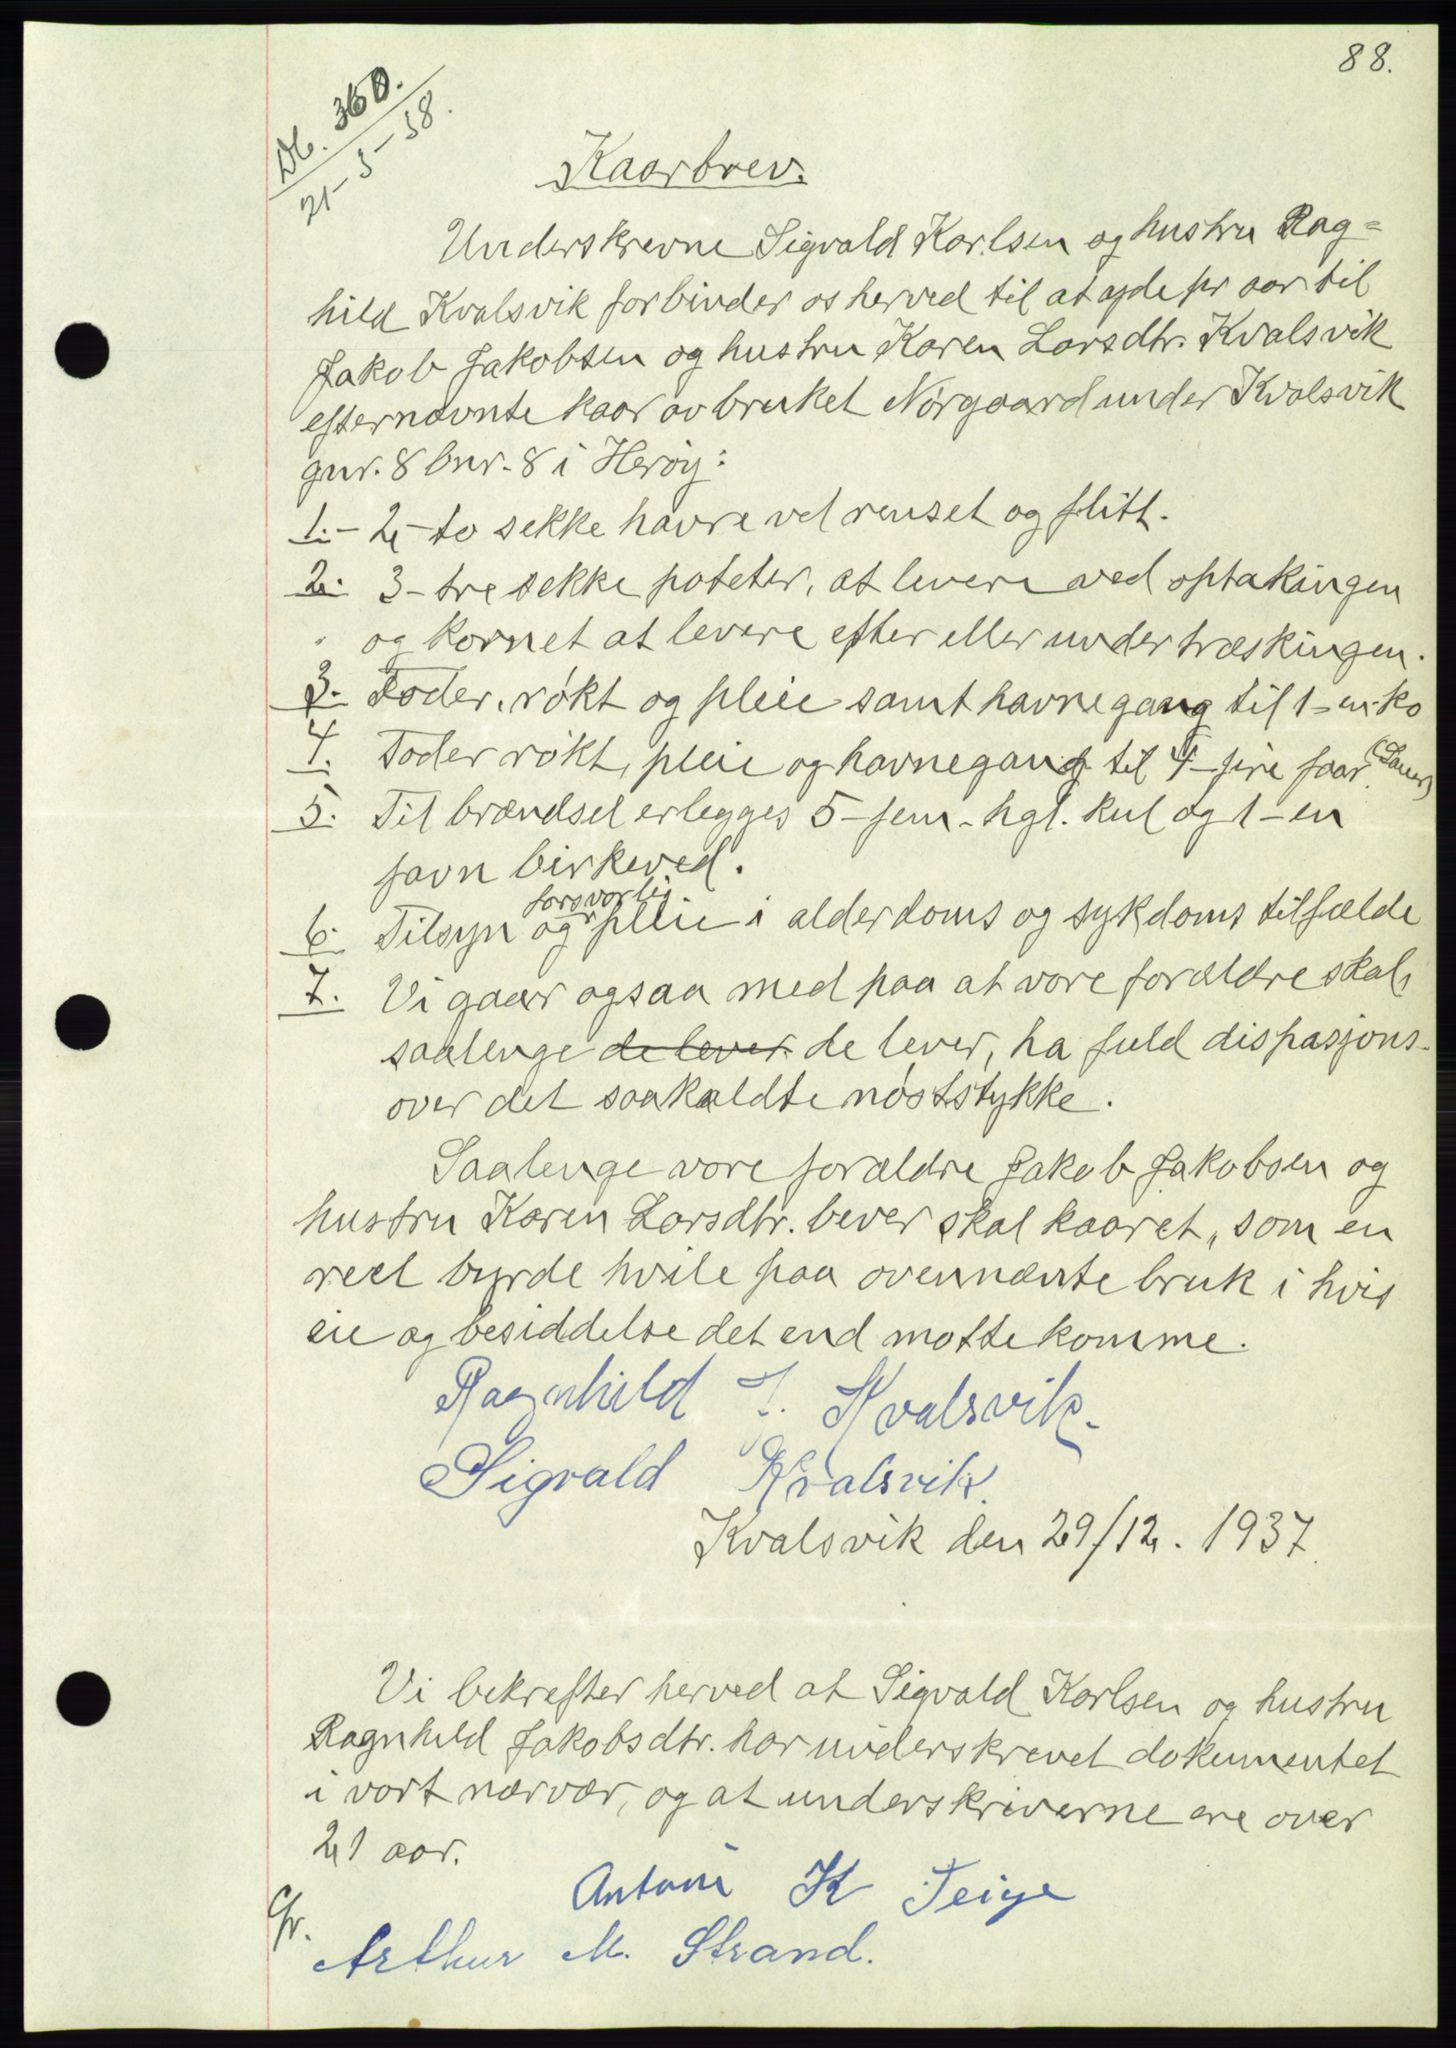 88.
Db. 360.
21-3-38.
Kaarbrev.
Underskrevne Sigvald Karlsen og hustru Rag=
hild Kvalsvik forbinder os herved til at yde pr aar til
Jakob Jakobsen og hustru Karen Larsdtr. Kvalsvik
efternævnte kaar av bruket Nørgaard under Kvalsvik
gnr. 8 bnr. 8 i Herøy:
1. - 2 - to sekke havre vel renset og flitt.
2. 3 - tre sekke poteter, at levere ved optakingen
og kornet at levere efter eller under træskingen.
3. Foder, røkt og pleie samt havnegang til 1 - en - ko
4. Foder røkt, pleie og havnegang til 4 - fire faar (Sauer)
5. Til brændsel erlegges 5 - fem - hgl. kul og 1 - en
favn birkeved.
forsvarlig
6. Tilsyn og pleie i alderdoms og sykdoms tilfælde
7. Vi gaar ogsaa med paa at vore forældre skal,
saalenge de lever de lever, ha fuld dispasjons-
over det saakaldte nøststykke.
Saalenge vore forældre Jakob Jakobsen og
hustru Karen Larsdtr. lever skal kaaret, som en
reel byrde hvile paa ovennænte bruk i hvis
eie og besiddelse det end motte komme.
Ragnhild J. Kvalsvik.
Sigvald Kvalsvik.
Kvalsvik den 29/12. 1937.
Vi bekrefter herved at Sigvald Karlsen og hustru
Ragnhild Jakobsdtr. har underskrevet dokumentet
i vort nærvær, og at underskriverne ere over
21 aar.
Antoni K Teige
Arthur M. Strand.